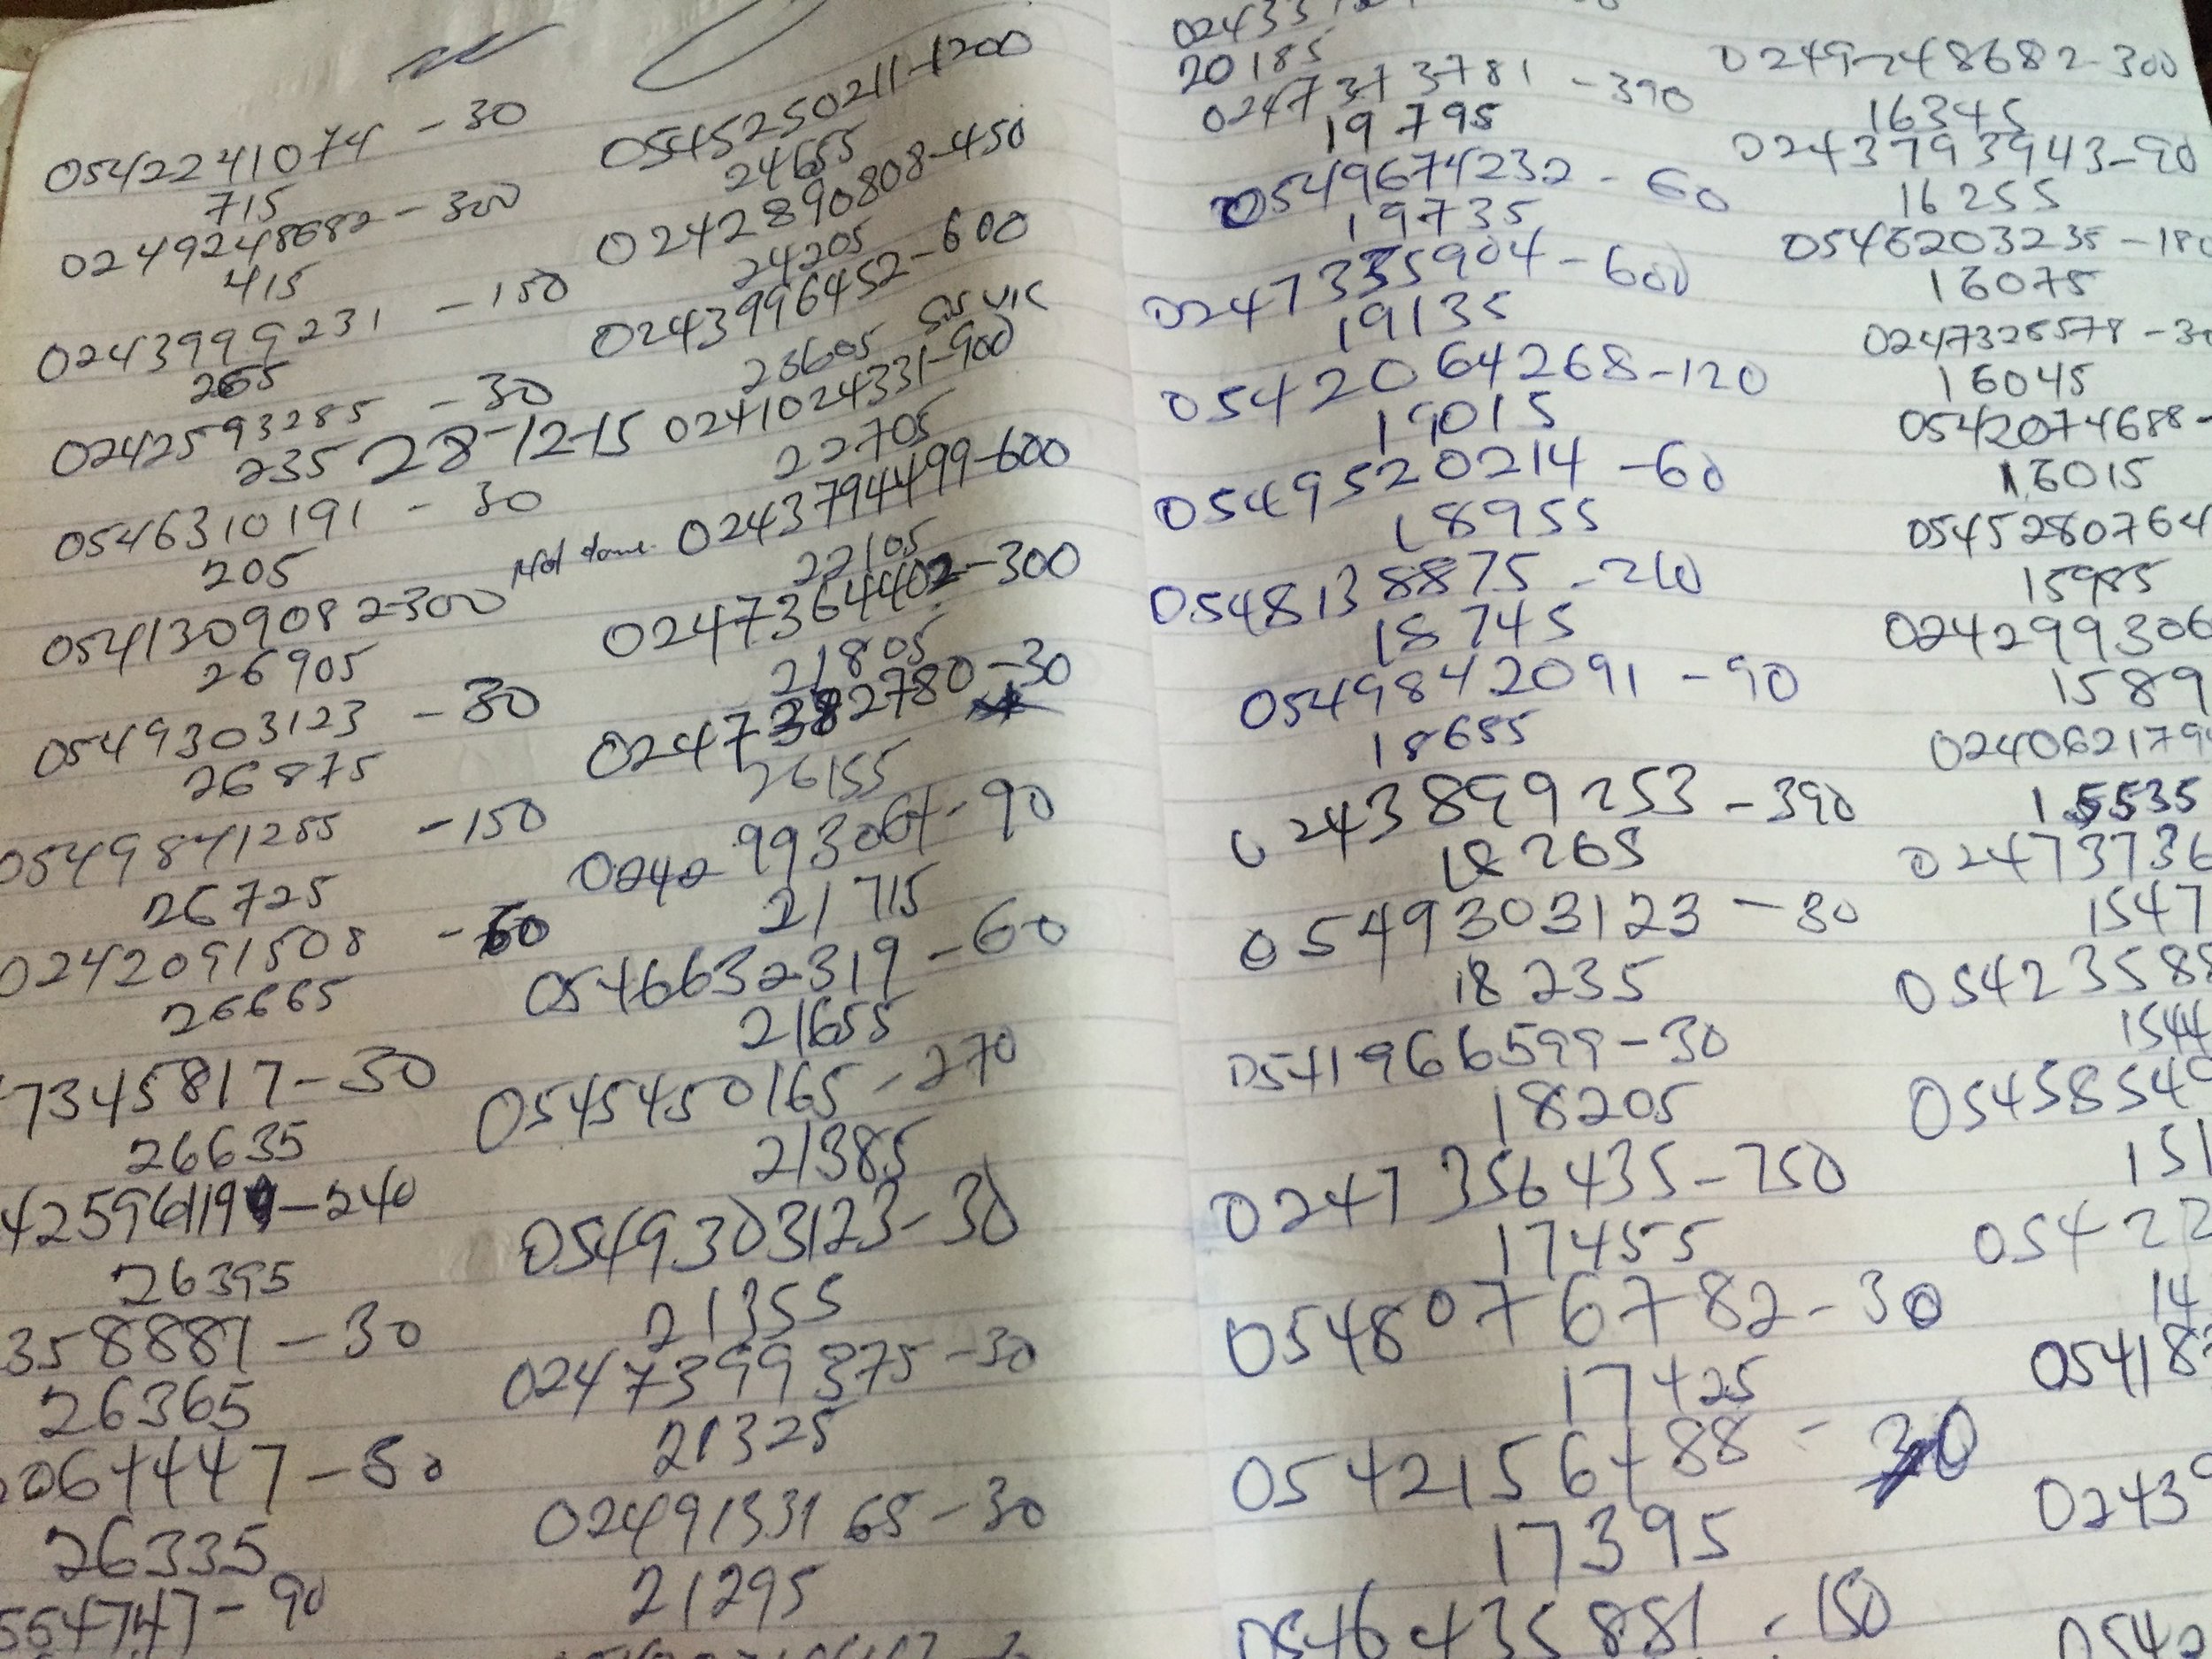 0542241074 - 30
715
0249248682 - 300
415
0243999231 - 150
265
0242593285 - 30
235 28-12-15
0546310191 - 30
205
0541309082-300
26905
0549303123 - 30
26875
0549841255 - 150
26725
0242091508 - 60
26665
7345817-30
26635
-240
26395
358881-30
26365
26335
554747-90
0545250211-1200
24655
0242890808-450
24205
0243996452-600
23605
0241024331-900
22705
Not done. 0243794499-600
22105
0247364402-300
21805
0247382780-30
26155
-90
21715
0546632319-60
21655
0545450165-270
21385
0549303123-30
21355
0247399375-30
21325
0249133165-30
21295
20185
0247313781 - 390
19795
0549674232 - 60
19735
0247335904-600
19135
0542064268-120
19015
0549520214-60
18955
0548138875-210
18745
0549842091 - 90
18655
0243899253-390
18265
0549303123-30
18235
0541966599-30
18205
0247356435-750
17455
0548076782-30
17425
0542156488 - 30
17395
0546435881 - 150
0249248682-300
16345
0243793943-90
16255
0546203235-180
16075
0247326578-30
16045
0542074688-
16015
0545280764
15985
024299306
1589
024062179
15535
02473736
1547
05423588
1544
05458540
151
05422
14
05418
0243
0542